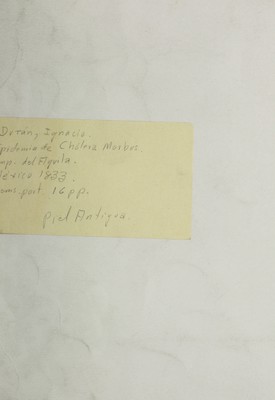 Durán, Ignacio.
Epidemia de Chólera Morbus.
Imp. del Aguila.
México 1833.
port. 16 pp.
Piel Antigua.